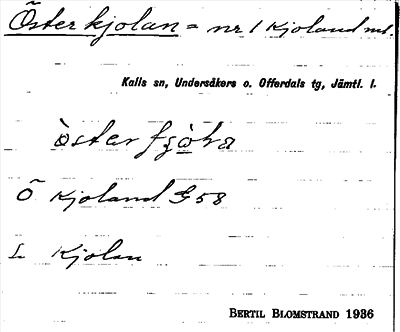 Österkjolan = nr 1 Kjoland ms.
Kalls sn, Undersåkers o. Offerdals tg, Jämtl. l.
Ö Kjoland G58
L Kjolan
BERTIL BLOMSTRAND 1936